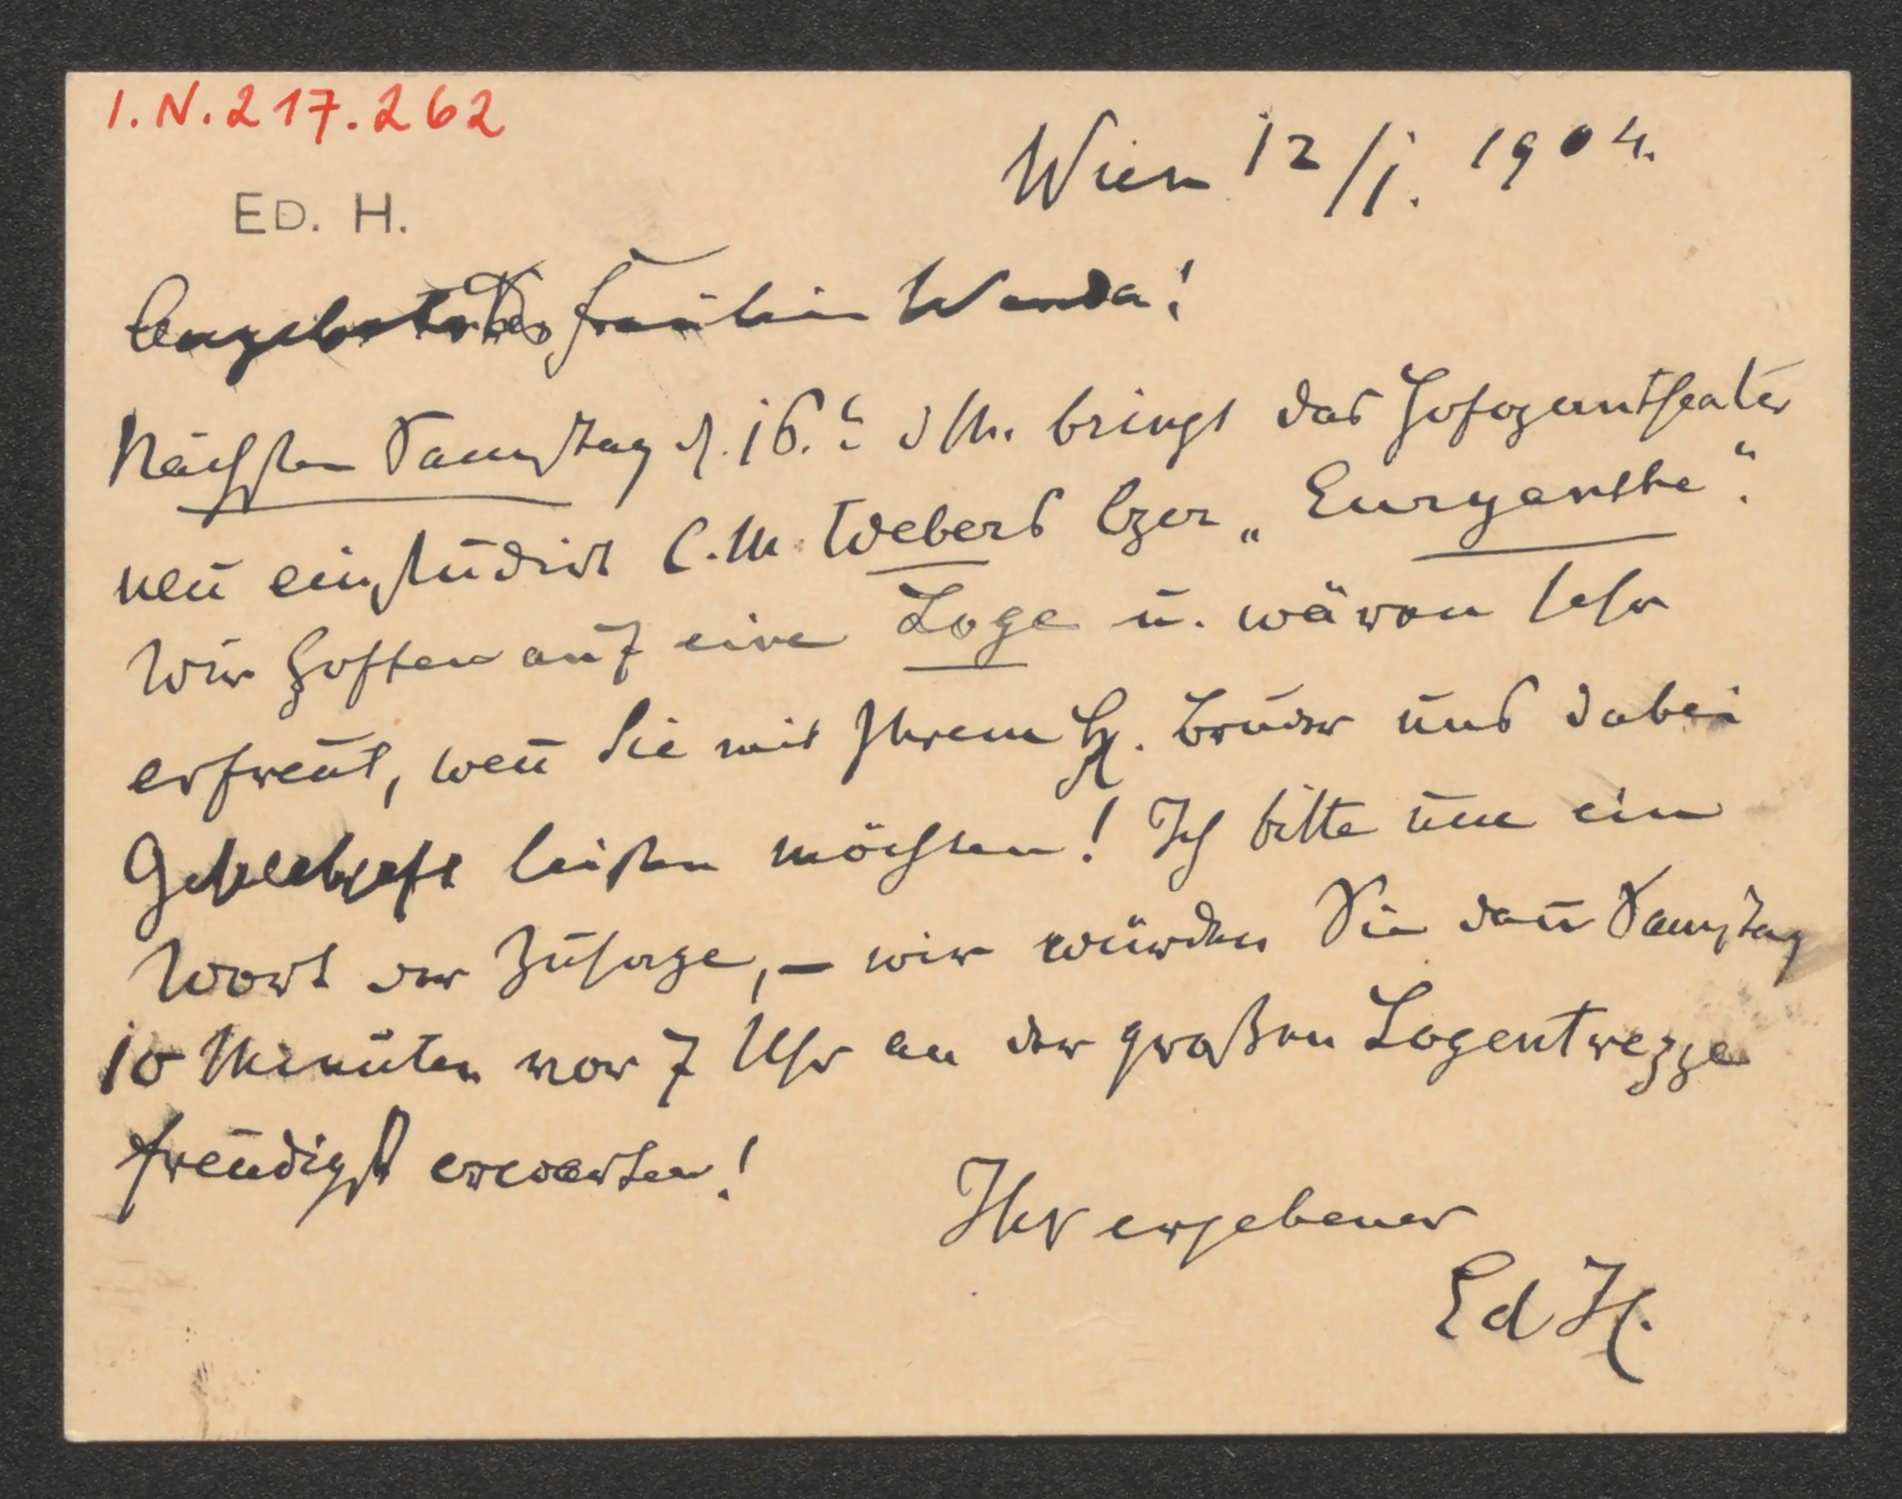 I.N.217.262
Wien 12/I. 1904.
ED. H.
Angebetetes Fräulein Wanda!
Nächsten Samstag d. 16.t d M. bringt das Hofoperntheater
neu einstudirt C. M. Webers Oper „Euryanthe“.
Wir hoffen auf eine Loge u. wären sehr
erfreut, wen̄ Sie mit Ihrem H. Bruder uns dabei
Gesellschaft leisten möchten! Ich bitte um ein
Wort der Zusage, – wir würden Sie dan̄ Samstag
10 Minuten vor 7 Uhr an der großen Logentreppe
freudigst erwarten!
Ihr ergebener
Ed H.